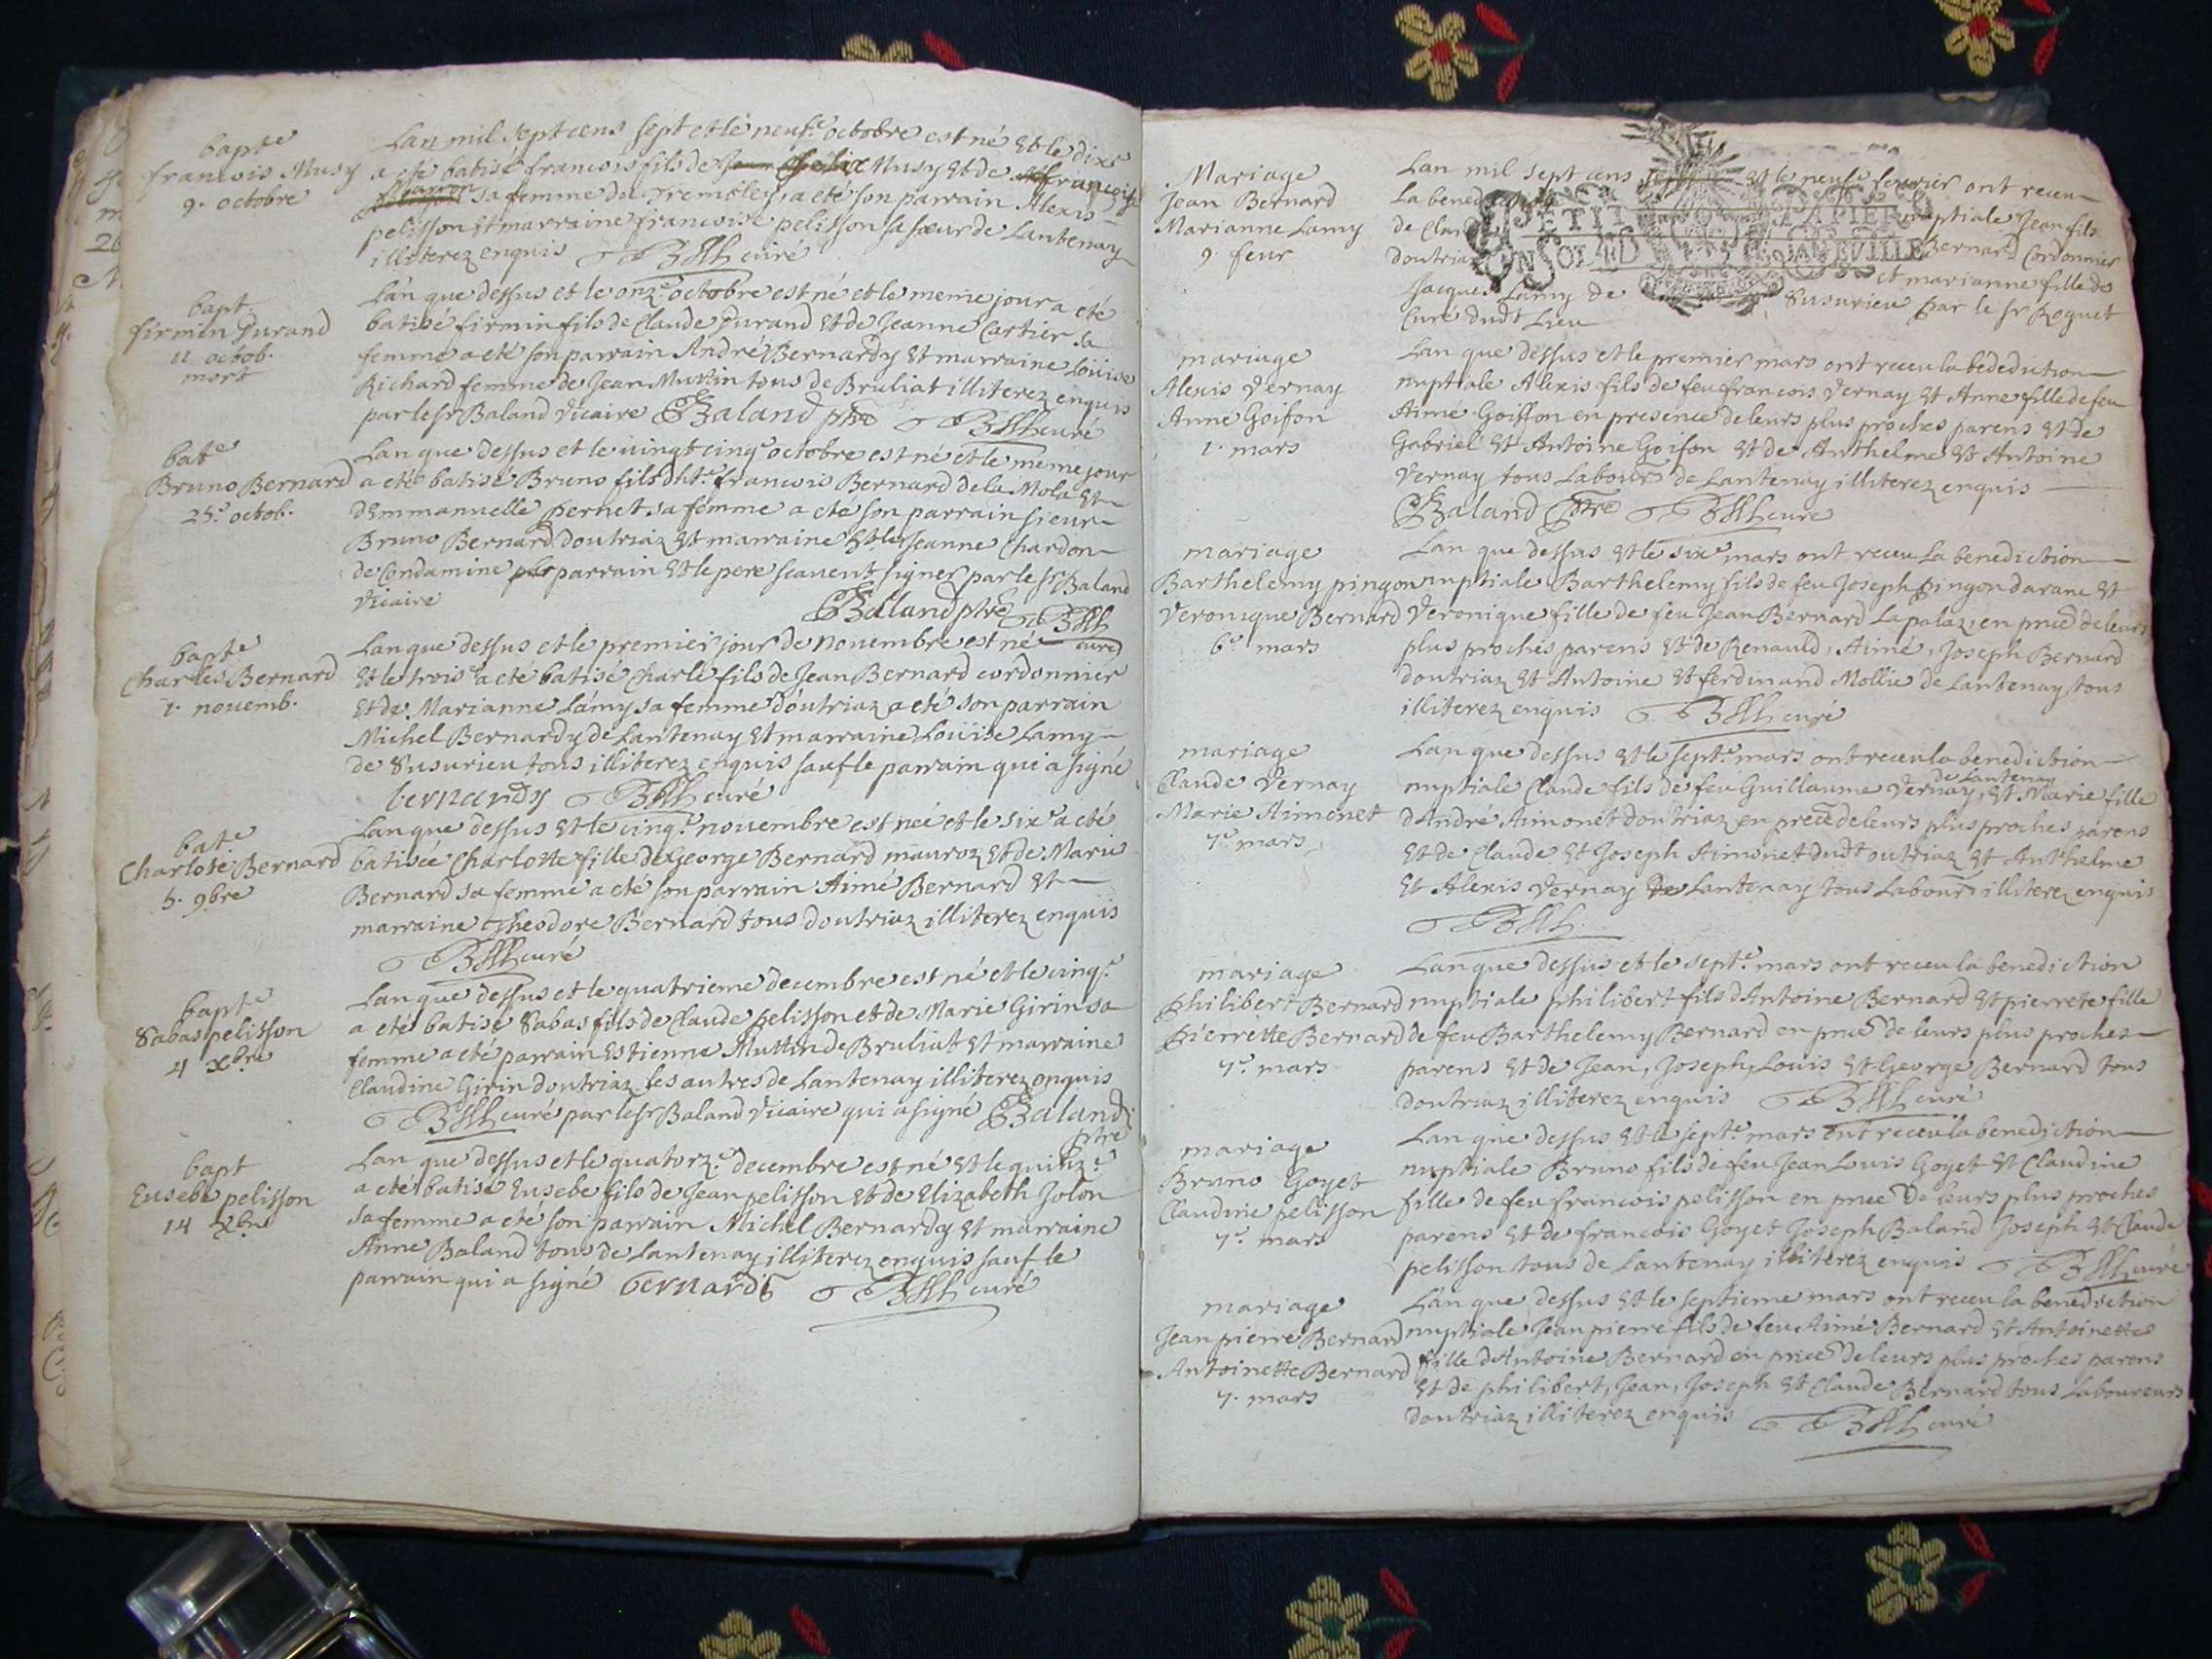 bapt.e
francois Musy
9. octobre
Lan mil sept cens sept et le neuf.e octobre est né et le dix.e
a eté batisé francois fils de felix Musy et de francoise
sa femme du Trembley, a eté son parrain Alexis
pelisson et marraine francoise pelisson sa sœur de Lantenay
illiterez enquis curé
bapt.
firmin Durand
11 octob.
mort
Lan que dessus et le onz.e octobre est né et le meme jour a eté
batisé firmin fils de Claude Durand et de Jeanne Cartier sa
femme a eté son parrain André Bernardy et marraine Loüise
Richard femme de Jean Muttin tous de Bruliat illiterez enquis
par le sr Baland vicaire Baland ptre curé
bat.e
Bruno Bernard
25.e octob.
Lan que dessus et le vingt cinq.e octobre est né et le meme jour
a eté batisé Bruno fils d francois Bernard de la Mola et
dEmmanuelle pernet sa femme a eté son parrain sieur
Bruno Bernard doutriaz et marraine Jeanne Chardon
de Condamine parrain et le pere scavent signer par le sr Baland
vicaire Baland ptre
curé
bapt.e
Charles Bernard
1. novemb.
Lan que dessus et le premier jour de novembre est né
et le trois.e a eté batisé Charle fils de Jean Bernard cordonnier
et de Marianne Lamy sa femme doutriaz a eté son parrain
Michel Bernardy de Lantenay et marraine Loüise Lamy
de Susurieu tous illiterez enquis sauf le parrain qui a signé
bernardy curé
bat.e
Charlote Bernard
5. 9bre
Lan que dessus et le cinq.e novembre est neé et le six.e a eté
batisée Charlotte fille de George Bernard mauroz et de Marie
Bernard sa femme a eté son parrain Aimé Bernard et
marraine Theodore Bernard tous doutriaz illiterez enquis
curé
bapt.e
Sabas pelisson
4 xbre
Lan que dessus et le quatrieme decembre est né et le cinq.e
a eté batisé Sabas fils de Claude pelisson et de Marie Girin sa
femme a eté parrain Estienne Muttin de Bruliat et marraine
Claudine Girin doutriaz les autres de Lantenay illiterez enquis
curé par le sr Baland vicaire qui a signé Baland
ptre
bapt
Eusebe pelisson
14 xbre
Lan que dessus et le quatorz.e decembre est né et le quinz.e
a eté batisé Eusebe fils de Jean pelisson et de Elizabeth Jolon
sa femme a eté son parrain Michel Bernardy et marraine
Anne Baland tous de Lantenay illiterez enquis sauf le
parrain qui a signé bernardy curé
PETIT PAPIER
UN SOL
Mariage
Jean Bernard
Marianne Lamy
9. feur
Lan mil sept cens sept et le neuf.e fevrier ont receu
La bened nuptiale Jean fils
de Clau Bernard Cordonnier
doutriaz et marianne fille de
Jacques Lamy de Susurieu par le sr Roguet
Curé dudt Lieu
mariage
Alexis Vernay
Anne Goifon
1. mars
Lan que dessus et le premier mars ont receu la bededicution
nuptiale Alexis fils de feu francois Vernay et Anne fille de feu
Aimé Goiffon en presence de leurs plus proches parens et de
Gabriel et Antoine Goifon et de Anthelme et Antoine
Vernay tous Labours de Lantenay illiterez enquis
Baland ptre curé
mariage
Barthelemy pingon
Veronique Bernard
6.e mars
Lan que dessus et le six.e mars ont receu la benediction
nuptiale Barthelemy fils de feu Joseph pingon daranc et
Veronique fille de feu Jean Bernard Lapalaz, en pnce de leurs
plus proches parens et de Renauld, Aimé, Joseph Bernard
doutriaz et Antoine et ferdinand Mollie de Lantenay tous
illiterez enquis curé
mariage
Claude Vernay
Marie Aimonet
7.e mars
Lan que dessus et le sept.e mars ont receu la benediction
nuptiale Claude fils de feu Guillaume Vernay de Lantenay, et Marie fille
dAndré Aimonet doutriaz en prece de leurs plus proches parens
et de Claude et Joseph Aimonet dudt outriaz et Anthelme
et Alexis Vernay de Lantenay tous Labours illiterez enquis
mariage
Philibert Bernard
Pierrette Bernard
7.e mars
Lan que dessus et le sept.e mars ont receu la benediction
nuptiale philibert fils dAntoine Bernard et pierrete fille
de feu Barthelemy Bernard en pnce de leurs plus proches
parens et de Jean, Joseph, Louis et George Bernard tous
doutriaz illiterez enquis curé
mariage
Bruno Goyet
Claudine pelisson
7.e mars
Lan que dessus et le sept.e mars ont receu la benediction
nuptiale Bruno fils de feu Jean Louis Goyet et Claudine
fille de feu francois pelisson en pnce de leurs plus proches
parens et de francois Goyet Joseph Baland Joseph et Claude
pelisson tous de Lantenay illiterez enquis curé
mariage
Jean pierre Bernard
Antoinette Bernard
7. mars
Lan que dessus et le septieme mars ont receu la benediction
nuptiale Jean pierre fils de feu Aimé Bernard et Antoinette
fille dAntoine Bernard en pnce de leurs plus proches parens
et de philibert, Jean, Joseph et Claude Bernard tous Laboureurs
doutriaz illiterez enquis curé